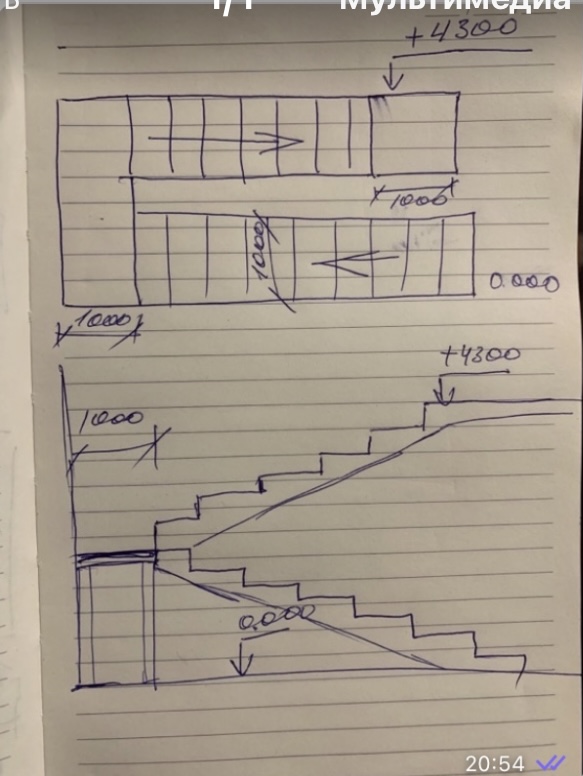 1/1 Мультимедиа
+4300
1000
1000
0.000
1000
+4300
1000
0,000
20:54